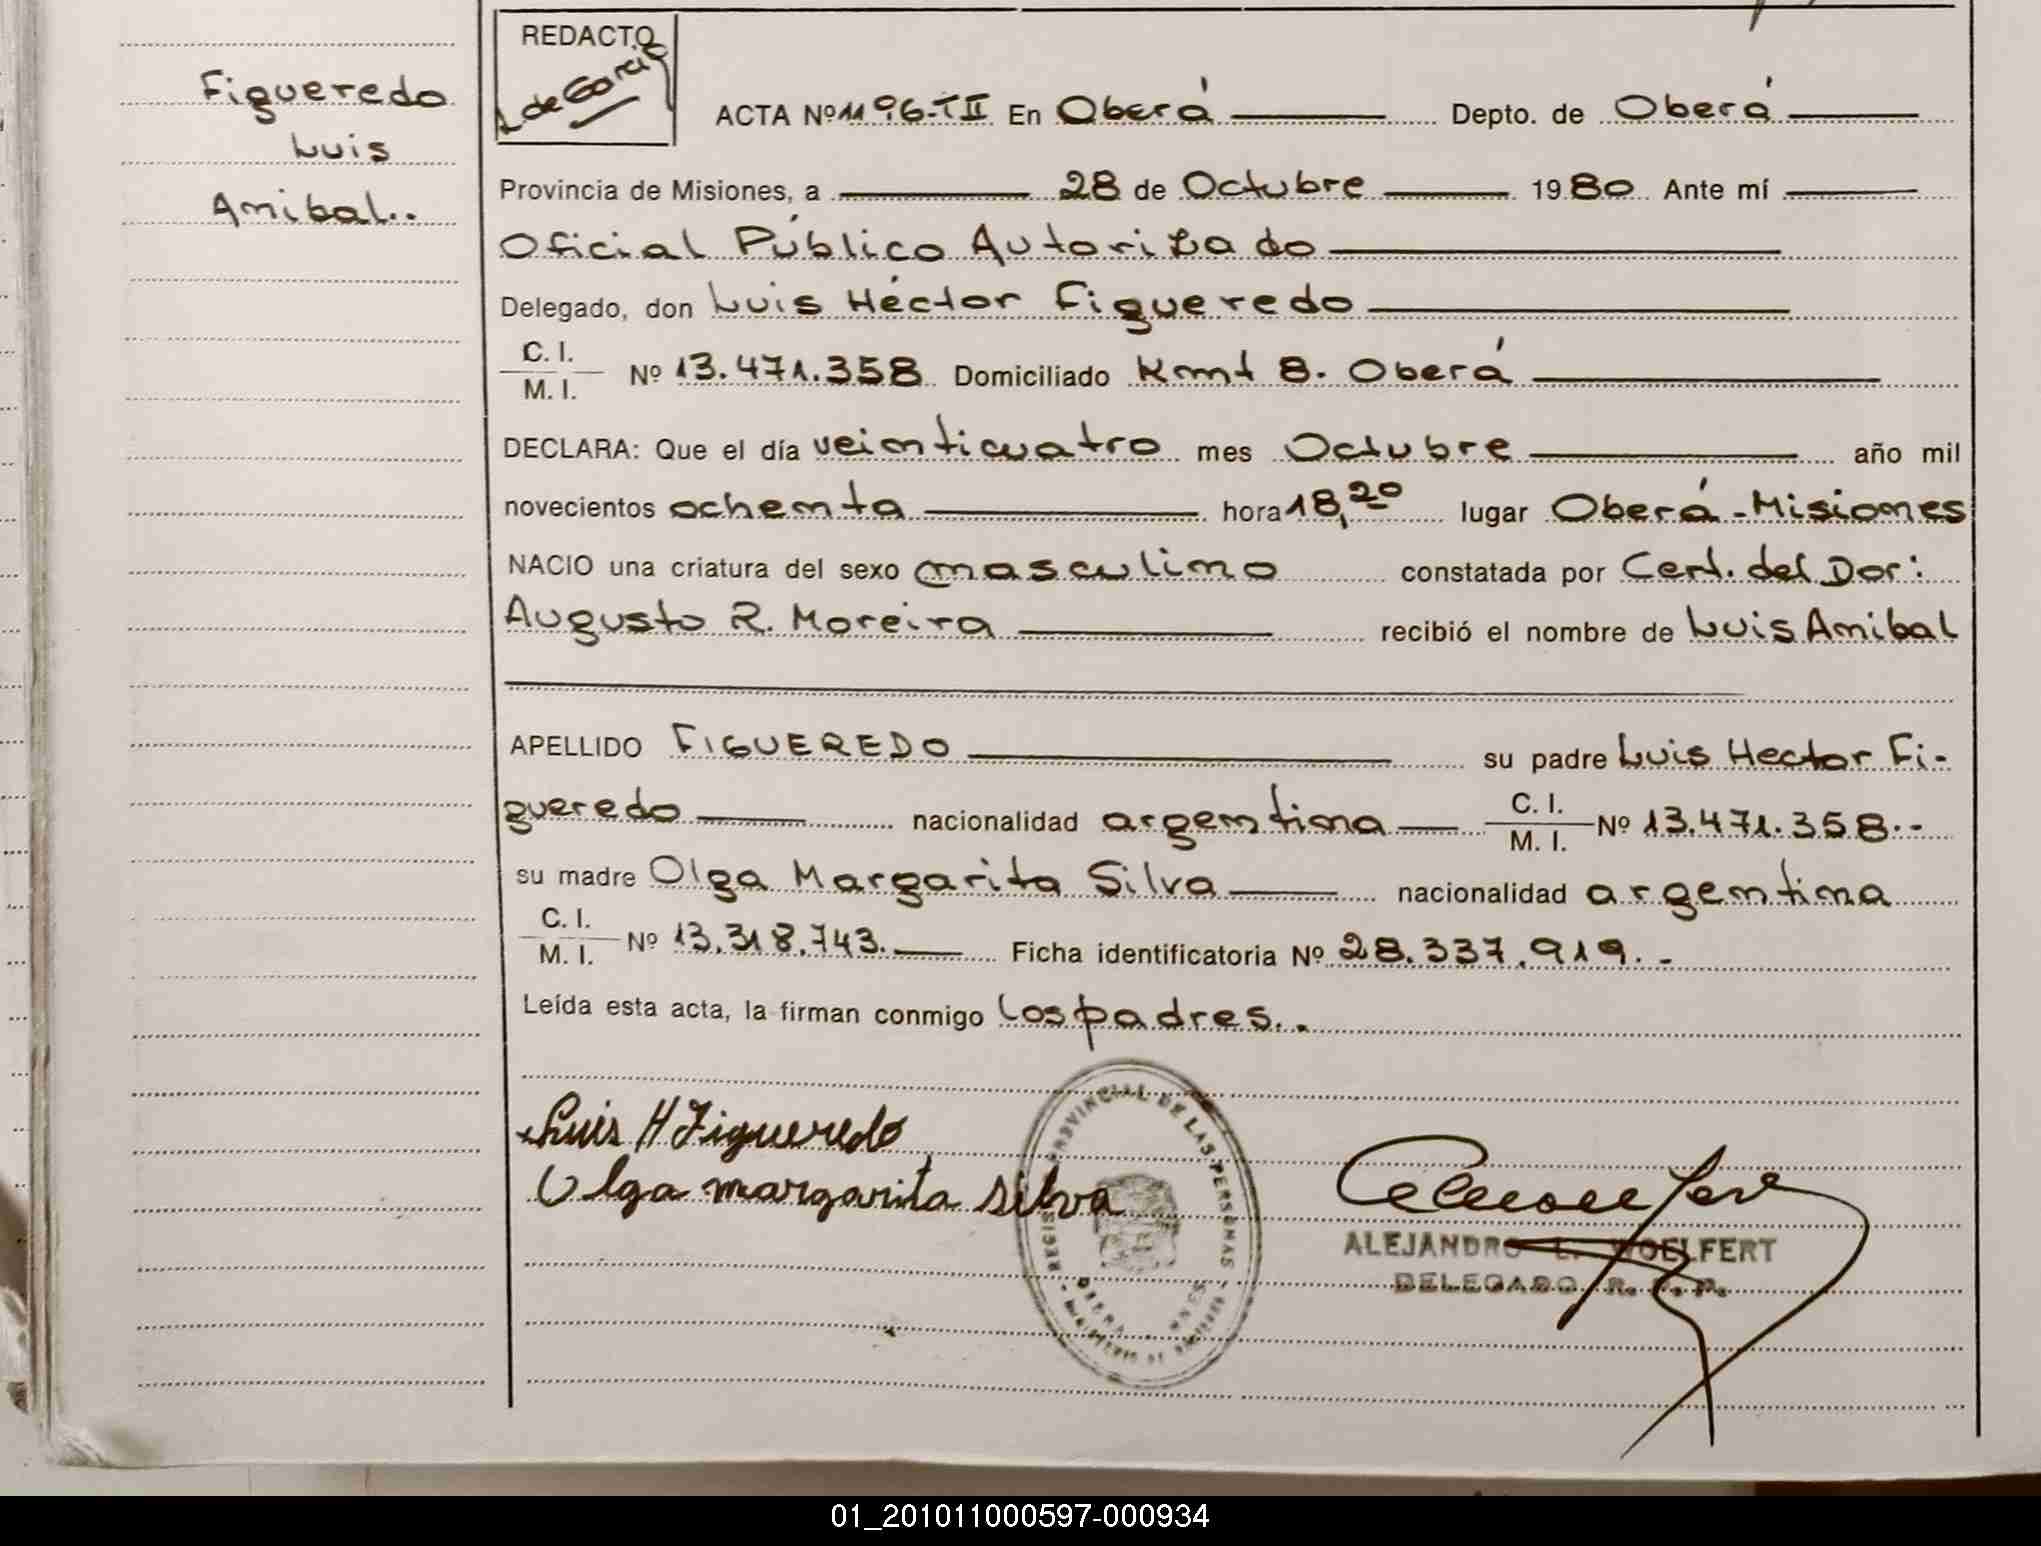 Figueredo
Luis
Anibal..
REDACTO
L de Garcia
ACTA Nº 1196-TII En Oberá Depto. de Oberá
Provincia de Misiones, a 28 de Octubre 1980 Ante mí
Oficial Público Autorizado
Delegado, don Luis Héctor Figueredo
C. I.
M. I. Nº 13.471.358 Domiciliado Kmt 8. Oberá
DECLARA: Que el día veinticuatro mes Octubre año mil
novecientos ochenta hora 18,20 lugar Oberá-Misiones
NACIO una criatura del sexo masculino constatada por Cert. del Dor:
Augusto R. Moreira recibió el nombre de Luis Anibal
APELLIDO FIGUEREDO su padre Luis Hector Fi-
gueredo nacionalidad argentina C. I. M. I. Nº 13.471.358.-
su madre Olga Margarita Silva nacionalidad argentina
C. I.
M. I. Nº 13.318.743. Ficha identificatoria Nº 28.337.919.-
Leída esta acta, la firman conmigo los padres..
Luis H Figueredo
Olga margarita silva
REGISTRO PROVINCIAL DE LAS PERSONAS
ALEJANDRO L. WOELFERT
DELEGADO R. P. P.
01_201011000597-000934